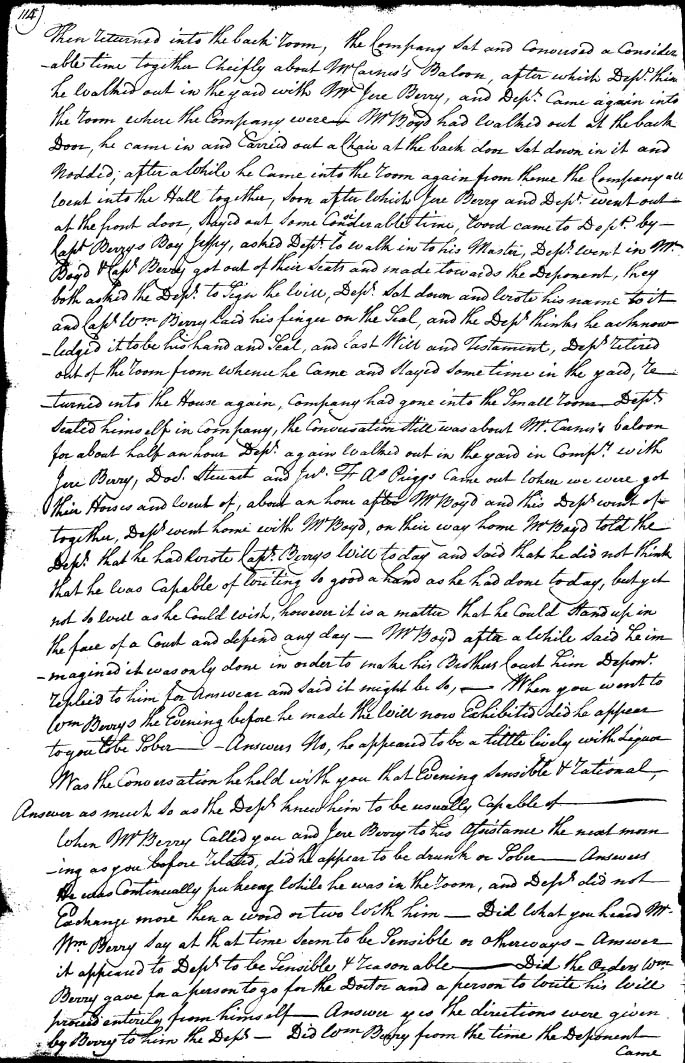 114
Then returned into the back room, the Company Sat and Conversed a Consider
-able time together Cheifly about Mr Carnes's Baloon, after which Dept. then
he Walked out in the yard with Mr Jere Berry, and Dept. Came again into
the Room where the Company were Mr Boyd had Walked out at the back
Door, he came in and Carried out a Chair at the back door Sat down in it and
Nodded; after a While he Came into the Room again from thence the Company all
went into the Hall together, Soon after which Jere Berry and Dept. went out
at the front door, Stay'd out Some Considerable time, Word came to Dept. by
Capt. Berrys Boy Jessy, asked Dept. to walk in to his Master, Dept. went in Mr
Boyd & Capt. Berry got out of their Seats and made towards the Deponent, they
both asked the Dept. to Sign the Will, Dept. Sat down and Wrote his name to it
and Capt. Wm Berry laid his finger on the Seal, and the Dept. thinks he acknow
-ledged it to be his hand and Seal, and Last Will and Testament, Dept. retired
out of the Room from whence he Came and Stayed Some time in the yard, re
-turned into the House again, Company had gone into the Small Room Dept.
Seated himself in Company, the Conversation Still was about Mr. Carnes's baloon
for about half an hour Dept. again Walked out in the yard in Compy. with
Jere Berry, Doct. Steuart and Jno. F As Priggs Came out Where we were got
their Horses and went of, about an hour after Mr Boyd and this Dept. went of
together, Dept. went home with Mr Boyd, on their way home Mr Boyd told the
Dept. that he had wrote Capt. Berrys Will today and said that he did not think
that he was Capable of Writing So good a hand as he had done to day, but yet
not So well as he Could wish, however it is a matter that he Could Stand up in
the face of a Court and defend any day — Mr Boyd after a while said he im
-magined it was only done in order to make his Brothers Court him Depont.
replied to him for answear and said it might be so, — When you went to
Wm Berrys the Evening before he made the Will now Exhibited did he appear
to you to be Sober — Answers No, he appeared to be a little lively with Liquor
Was the Conversation he held with you that Evening Sensible & rational,
Answer as much so as the Dept. knew him to be usually Capable of —
When Mr Berry Called you and Jere Berry to his Assistance the next morn
-ing as you before related, did he appear to be drunk or Sober — Answers
He was Continually pukeing While he was in the Room, and Dept. did not
Exchange more then a word or two With him — Did What you heard Mr.
Wm Berry Say at that time Seem to be Sensible or otherways — Answer
it appeared to Dept. to be Sensible & reasonable — Did the Orders Wm
Berry gave for a person to go for the Doctor and a person to write his Will
proceed entirely from himself — Answer yes the directions were given
by Berry to him the Dept. — Did Wm Berry from the time the Deponent
Came